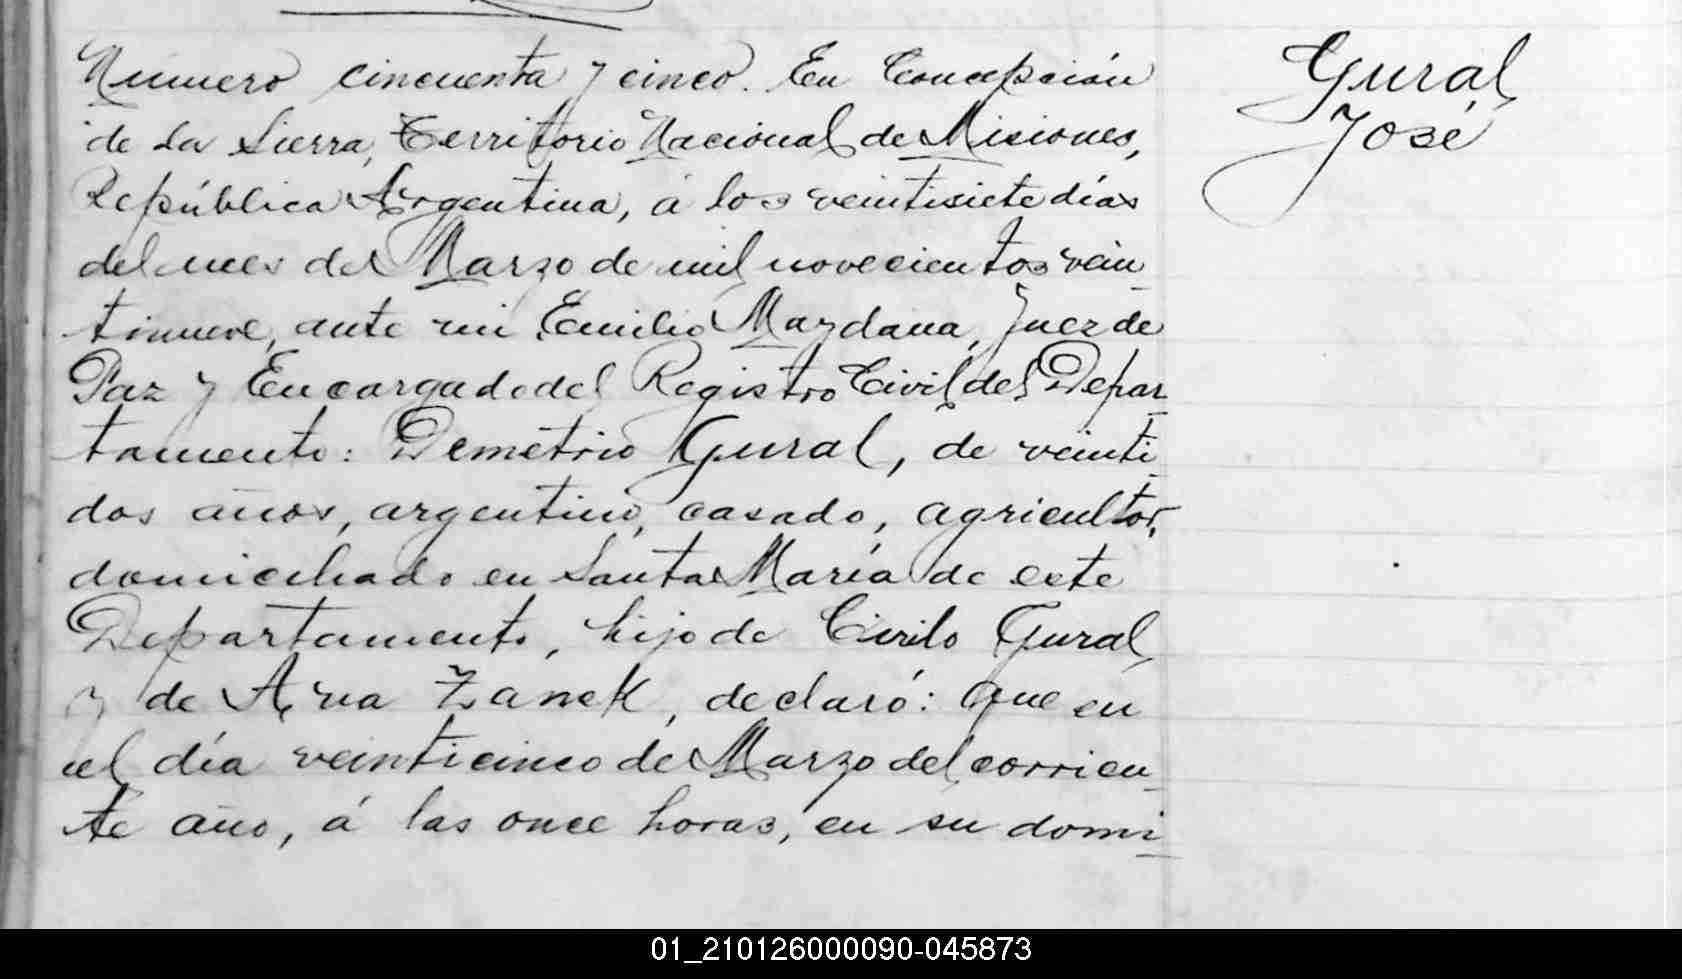 Número cincuenta y cinco. En Concepción
de la Sierra, Territorio Nacional de Misiones,
República Argentina, á los veintisiete días
del mes de Marzo de mil novecientos vein
tinueve, ante mi Emilio Maydana, Juez de
Paz y Encargado del Registro Civil del Depar
tamento: Demétrio Gural, de veinti
dos años, argentino, casado, agricultor,
domiciliado en Santa María de este
Departamento, hijo de Cirilo Gural,
y de Ana Zanek, declaró: Que en
el día veinticinco de Marzo del corrien
te año, á las once horas, en su domi
Gural
José
01_210126000090-045873